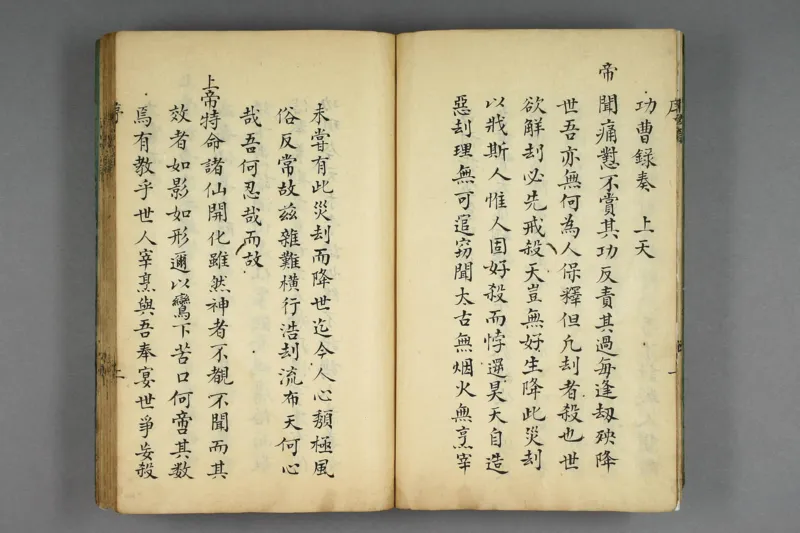 功曹錄奏　上天
帝
聞痛懟不賞其功反責其過每逢劫殃降
世吾亦無何為人保釋但凢刦者殺也世
欲解刦必先戒殺天豈無好生降此災刦
以戕斯人惟人固好殺而悖還昊天自造
惡刦理無可逭窃聞太古無烟火無烹宰
未嘗有此災刦而降世迄今人心頹極風
俗反常故兹雜難橫行浩刦流布天何心
哉吾何忍哉而故
上帝特命諸仙開化雖然神者不覩不聞而其
效者如影如形邇以鸞下苦口何啻其数
焉有教乎世人宰烹與吾奉宴世爭妄殺
序
上